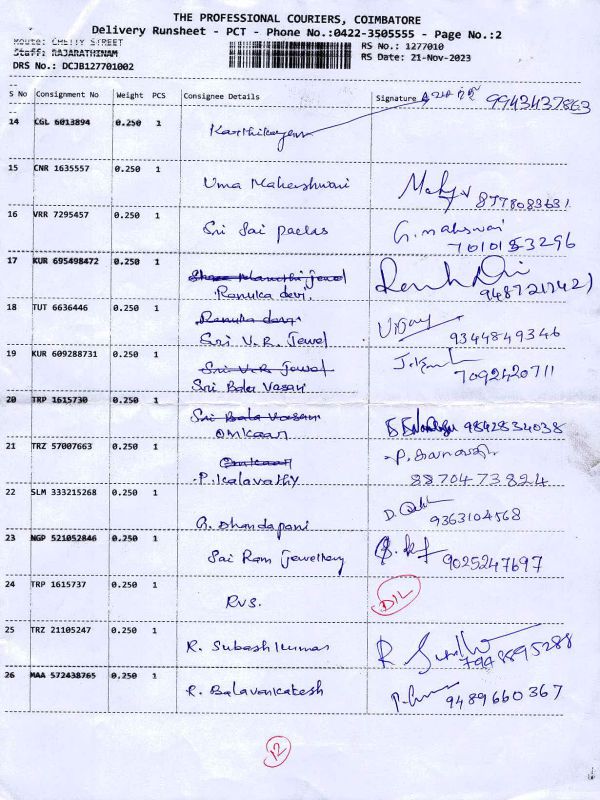 THE PROFESSIONAL COURIERS, COIMBATORE
Delivery Runsheet - PCT - Phone No.:0422-3505555 - Page No.:2
Route: CHETTY STREET
Staff: RAJARATHINAM
DRS No.: DCJB127701002
RS No.: 1277010
RS Date: 21-Nov-2023
S No Consignment No Weight PCS Consignee Details Signature 9943437863
14 CGL 6013894 0.250 1 Karthikeyan
15 CNR 1635557 0.250 1 Uma Maheshwari 8778083631
16 VRR 7295457 0.250 1 Sri Sai paelas G. maheswari 7010153296
17 KUR 695498472 0.250 1 Renuka devi. 9487217421
18 TUT 6636446 0.250 1 Renuka devi Sri V.R. Jewel Vijay 9344849346
19 KUR 609288731 0.250 1 Sri V.R Jewel Sri Bala Vasavi 7092420711
20 TRP 1615730 0.250 1 Sri Bala Vasavi Omkaar 9842834038
21 TRZ 57007663 0.250 1 Omkaar P. Kalavathy 8870473824
22 SLM 333215268 0.250 1 G. Dhandapani 9363104568
23 NGP 521052846 0.250 1 Sai Ram Jewellery 9025247697
24 TRP 1615737 0.250 1 RVS. D/L
25 TRZ 21105247 0.250 1 R. Subash kumar 7948895288
26 MAA 572438765 0.250 1 R. Balavenkatesh 9489660367
12